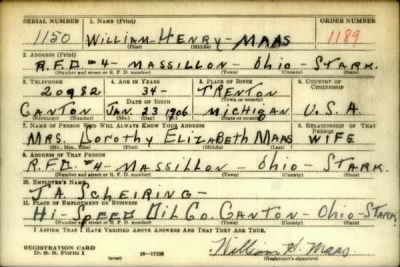 SERIAL NUMBER 1. NAME (Print) ORDER NUMBER
1150 WILLIAM - HENRY - MAAS 1189
(First) (Middle) (Last)
2. ADDRESS (Print)
R.F.D #4 - MASSILLON - OHIO - STARK.
3. TELEPHONE 4. AGE IN YEARS 5. PLACE OF BIRTH 6. COUNTRY OF CITIZENSHIP
20982 34 - TRENTON
DATE OF BIRTH
CANTON JAN. 23 1906 MICHIGAN U.S.A.
7. NAME OF PERSON WHO WILL ALWAYS KNOW YOUR ADDRESS 8. RELATIONSHIP OF THAT PERSON
MRS. DOROTHY ELIZABETH MAAS WIFE
(Mr., Mrs., Miss) (First) (Middle) (Last)
9. ADDRESS OF THAT PERSON
R.F.D. #4 - MASSILLON - OHIO - STARK.
10. EMPLOYER'S NAME
J.A. SCHEIRING -
11. PLACE OF EMPLOYMENT OR BUSINESS
HI-SPEED OIL CO. CANTON - OHIO - STARK
I AFFIRM THAT I HAVE VERIFIED ABOVE ANSWERS AND THAT THEY ARE TRUE.
REGISTRATION CARD
D. S. S. Form 1 (over) 16-17105 William H. Maas
(Registrant's signature)